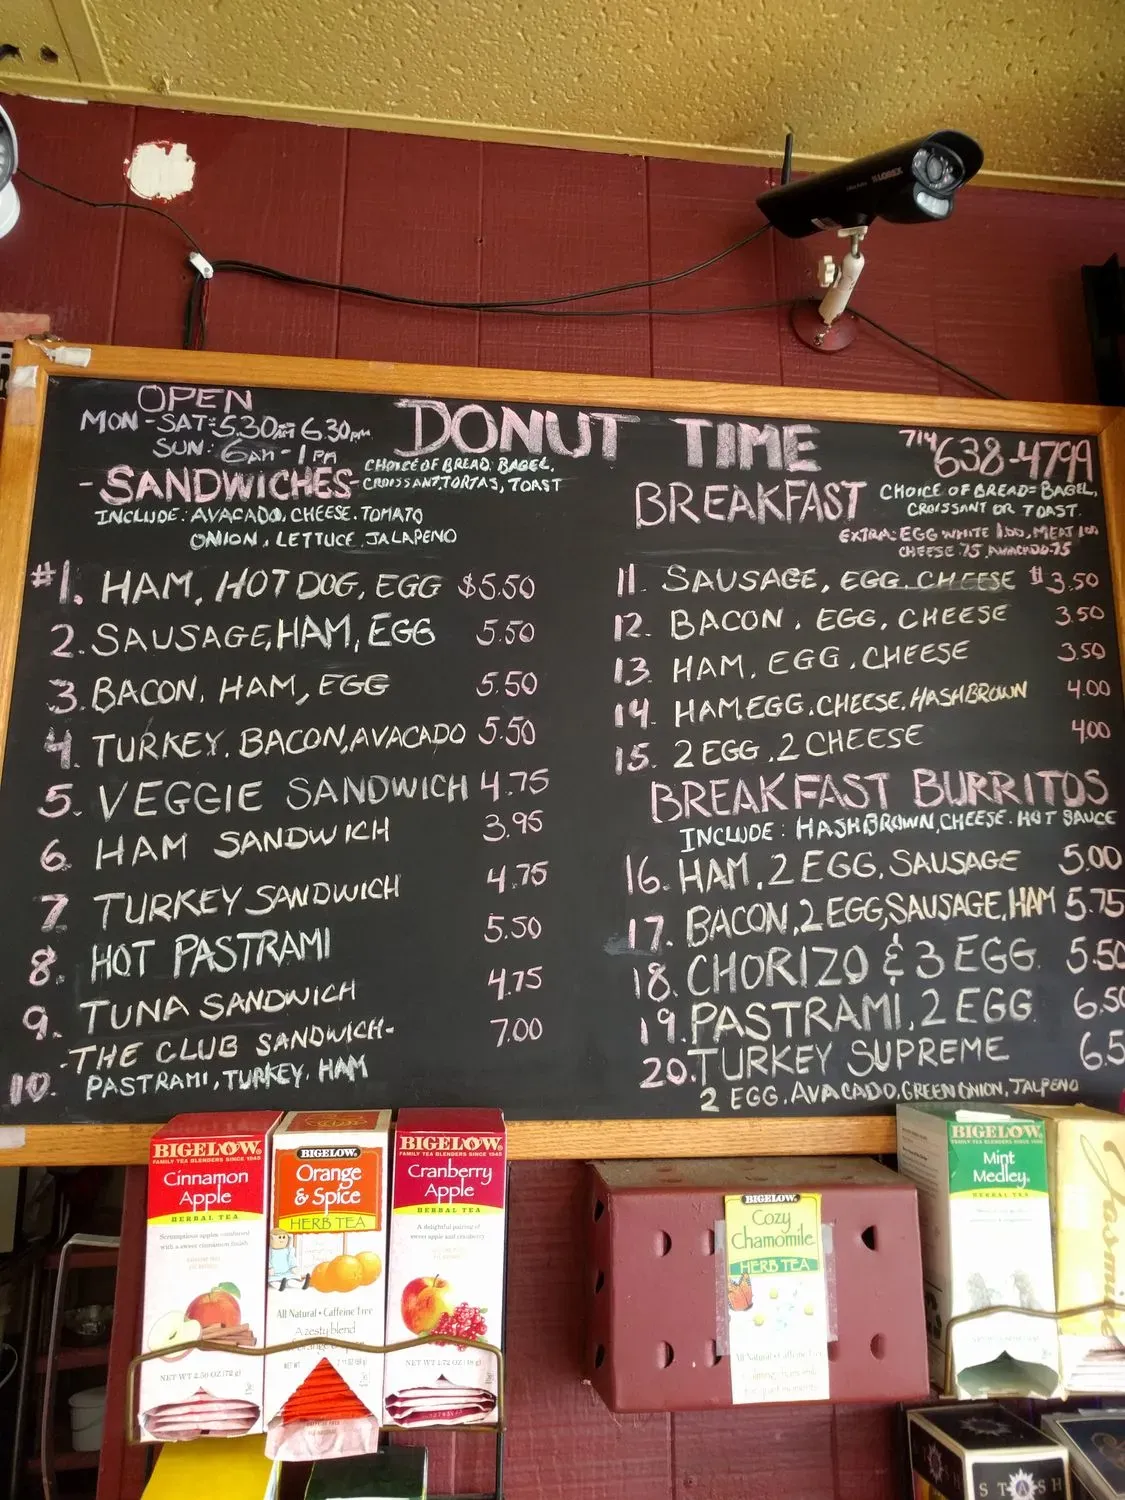 OPEN
MON-SAT: 5.30AM 6.30PM
SUN: 6AM-1PM
DONUT TIME
714 638-4799
-SANDWICHES-
CHOICE OF BREAD: BAGEL,
CROISSANT, TORTAS, TOAST
INCLUDE: AVACADO, CHEESE. TOMATO
ONION, LETTUCE, JALAPENO
#1. HAM, HOT DOG, EGG $5.50
2. SAUSAGE, HAM, EGG 5.50
3. BACON, HAM, EGG 5.50
4. TURKEY. BACON, AVACADO 5.50
5. VEGGIE SANDWICH 4.75
6. HAM SANDWICH 3.95
7. TURKEY SANDWICH 4.75
8. HOT PASTRAMI 5.50
9. TUNA SANDWICH 4.75
10. -THE CLUB SANDWICH- 7.00
PASTRAMI, TURKEY, HAM
BREAKFAST
CHOICE OF BREAD= BAGEL,
CROISSANT OR TOAST.
EXTRA: EGG WHITE 1.00, MEAT 1.00
CHEESE .75, AVACADO .75
11. SAUSAGE, EGG. CHEESE $3.50
12. BACON, EGG, CHEESE 3.50
13. HAM, EGG, CHEESE 3.50
14. HAM, EGG, CHEESE, HASHBROWN 4.00
15. 2 EGG, 2 CHEESE 4.00
BREAKFAST BURRITOS
INCLUDE: HASHBROWN, CHEESE. HOT SAUCE
16. HAM, 2 EGG, SAUSAGE 5.00
17. BACON, 2 EGG, SAUSAGE, HAM 5.75
18. CHORIZO & 3 EGG. 5.50
19. PASTRAMI, 2 EGG 6.50
20. TURKEY SUPREME 6.5
2 EGG, AVACADO, GREEN ONION, JALPENO
LOREX
BIGELOW
FAMILY TEA BLENDERS SINCE 1945
Cinnamon
Apple
HERBAL TEA
Scrumptious apples combined
with a sweet cinnamon finish
NET WT 2.50 OZ (72 g)
BIGELOW
Orange
& Spice
HERB TEA
All Natural • Caffeine Free
A zesty blend
BIGELOW
FAMILY TEA BLENDERS SINCE 1945
Cranberry
Apple
HERBAL TEA
A delightful pairing of
sweet apple and cranberry
BIGELOW
Cozy
Chamomile
HERB TEA
All Natural • Caffeine Free
BIGELOW
FAMILY TEA BLENDERS SINCE 1945
Mint
Medley
HERBAL TEA
Jasmine
STASH